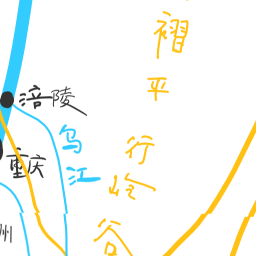 褶
平
行
岭
谷
涪陵
乌
江
重庆
州